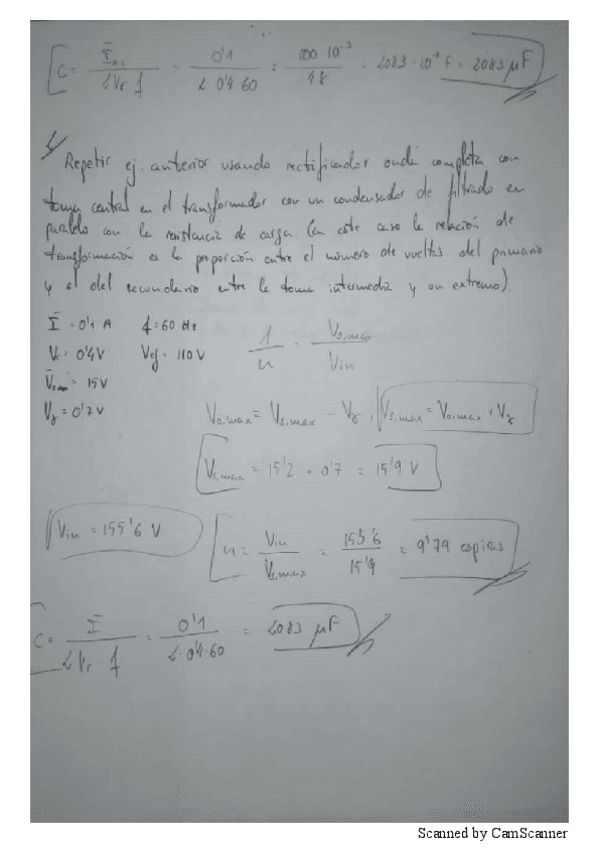 C = Ī / 2Vr f = 0'1 / 2·0'4·60 = 100·10⁻³ / 48 = 2083·10⁻⁶ F = 2083 µF
4/ Repetir ej. anterior usando rectificador onda completa con
toma central en el transformador con un condensador de filtrado en
paralelo con la resistencia de carga. (en este caso la relación de
transformación es la proporción entre el número de vueltas del primario
y el del secundario entre la toma intermedia y un extremo)
Ī = 0'1 A f = 60 Hz 1/n = Vs,max / Vin
Vr = 0'4V Vef = 110 V
= 15V
Vγ = 0'7V Vo,max = Vs,max - Vγ, Vs,max = Vo,max + Vγ
Vs,max = 15'2 + 0'7 = 15'9 V
Vin = 155'6 V n = Vin / Vs,max = 155'6 / 15'9 = 9'79
C = Ī / 2Vr·f = 0'1 / 2·0'4·60 = 2083 µF
Scanned by CamScanner